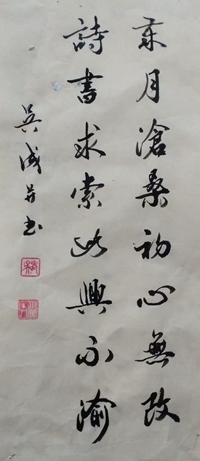 年月滄桑初心無改
詩書求索此興不渝
吳成有書